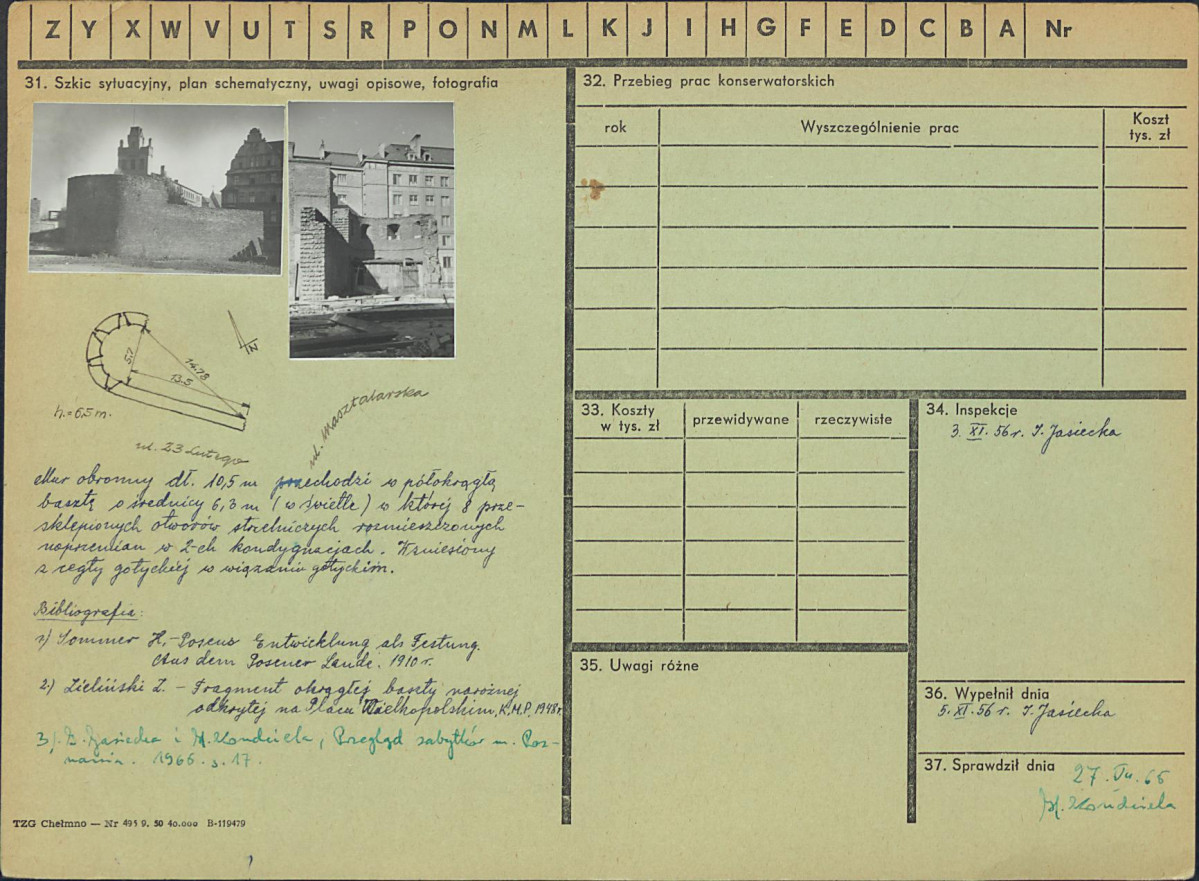 Z Y X W V U T S R P O N M L K J I H G F E D C B A Nr
31. Szkic sytuacyjny, plan schematyczny, uwagi opisowe, fotografia
5,7
14.78
13.5
N
h.=6,5 m.
ul. 23 Lutego
ul. Masztalarska
Mur obronny dł. 10,5 m przechodzi w półokrągłą
basztę o średnicy 6,3 m (w świetle) w której 8 prze-
sklepionych otworów strzelniczych rozmieszczonych
naprzemian w 2-ch kondygnacjach. Wzniesiony
z cegły gotyckiej w wiązaniu gotyckim.
Bibliografia:
1) Sommer H,- Posens Entwicklung als Festung.
Aus dem Posener Lande. 1910 r.
2) Zieliński Z. - Fragment okrągłej baszty narożnej
odkrytej na Placu Wielkopolskim, K.M.P. 1948r
3). B. Jasiecka i M. Kondziela, Przegląd zabytków m. Poz-
nania. 1966. s. 17.
TZG Chełmno — Nr 495 9. 50 40.000 B-119479
32. Przebieg prac konserwatorskich
rok
Wyszczególnienie prac
Koszt
tys. zł
33. Koszty
w tys. zł
przewidywane
rzeczywiste
34. Inspekcje
3. XI. 56 r. I. Jasiecka
35. Uwagi różne
36. Wypełnił dnia
5. XI. 56 r. I. Jasiecka
37. Sprawdził dnia
27. VII. 65
M. Kondziela